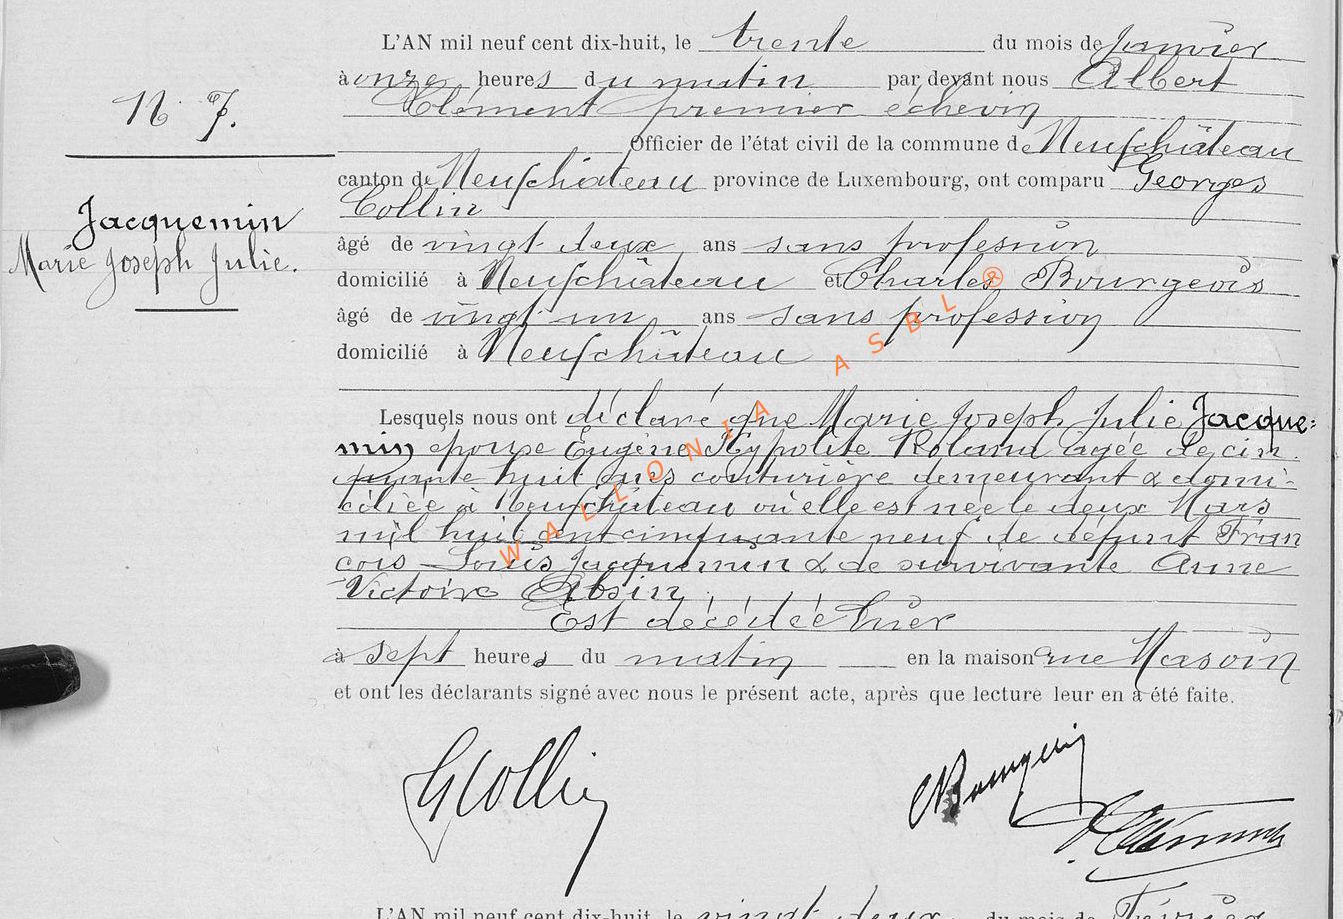 L'AN mil neuf cent dix-huit, le trente du mois de Janvier
à onze heures du matin par devant nous Albert
Clément premier échevin
N° 7.
Officier de l'état civil de la commune de Neufchâteau
canton de Neufchâteau province de Luxembourg, ont comparu Georges
Collin
Jacquemin
Marie Joseph Julie.
âgé de vingt deux ans sans profession
domicilié à Neufchâteau et Charles Bourgeois
âgé de vingt un ans sans profession
domicilié à Neufchâteau
WALLONIA ASBL®
Lesquels nous ont déclaré que Marie Joseph Julie Jacque=
min épouse Eugène Hypolite Roland agée de cin
quante huit ans couturière demeurant & domi-
ciliée à Neufchâteau où elle est née le deux Mars
mil huit cent cinquante neuf de défunt Fran
cois Louis Jacquemin & de survivante Anne
Victoire Absin
Est décédée hier
à sept heures du matin en la maison rue Massin
et ont les déclarants signé avec nous le présent acte, après que lecture leur en a été faite.
G Collin
C Bourgeois
A. Clément
L'AN mil neuf cent dix-huit, le vingt deux du mois de Février